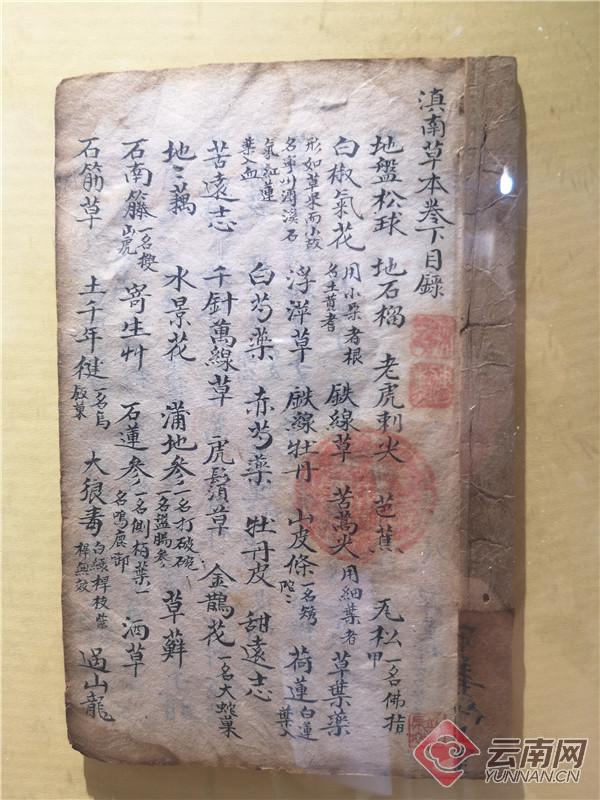 滇南草本卷下目錄
地盤松球 地石榴 老虎刺尖 芭蕉 瓦松一名佛指甲
白椒氣花 用小朶者根名土黄耆 鉄線草 苦蒿尖用細葉者 草葉藥
形如草果而小故名寧州酒溪石 浮萍草 鉄線牡丹 山皮條一名矮陀〻 荷蓮白蓮葉入
氣紅蓮葉入血 白芍藥 赤芍藥 牡丹皮 甜遠志
苦遠志 千針萬線草 虎鬚草 金鵲花一名大蛇菓
地〻藕 水景花 蒲地參一名打破碗一名盤腸參 草蘚
石南籐一名搜山虎 寄生艸 石蓮參一名側栢葉一名鳴鹿啣 酒草
石筋草 土千年健一名烏飯菓 大狼毒 過山龍
云南网
YUNNAN.CN